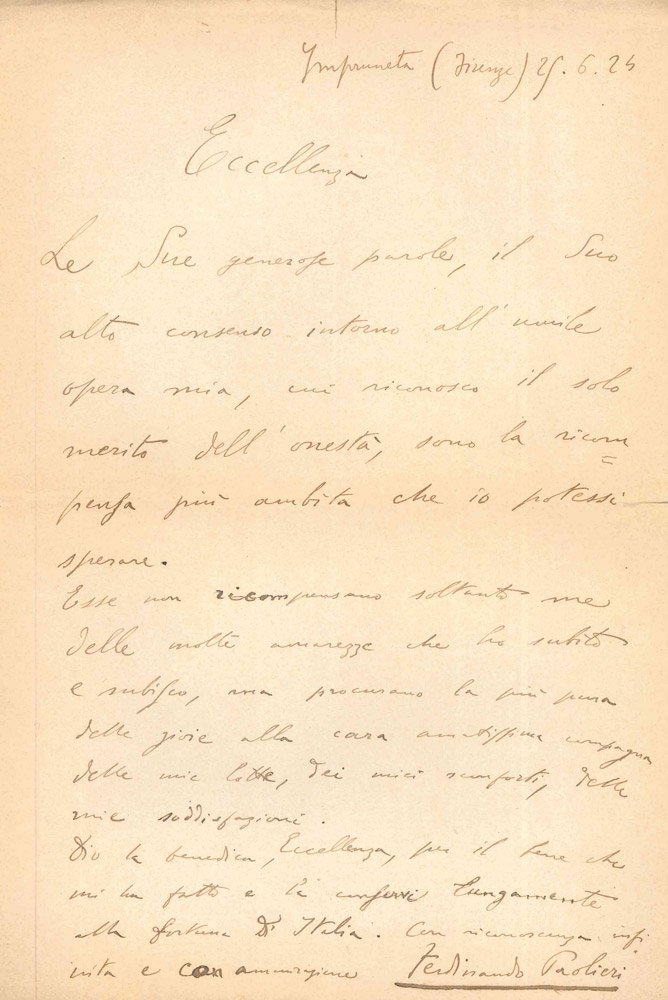 Impruneta (Firenze) 25.6.24
Eccellenza
Le Sue generose parole, il Suo
alto consenso intorno all'umile
opera mia, cui riconosco il solo
merito dell'onestà, sono la ricom=
pensa più ambita che io potessi
sperare.
Esse non ricompensano soltanto me
delle molte amarezze che ho subito
e subisco, ma procurano la più pura
delle gioie alla cara amatissima compagna
delle mie lotte, dei miei sconforti, delle
mie soddisfazioni.
Dio la benedica, Eccellenza, per il bene che
mi ha fatto e la conservi lungamente
alla fortuna d'Italia. Con riconoscenza infi
nita e con ammirazione Ferdinando Paolieri